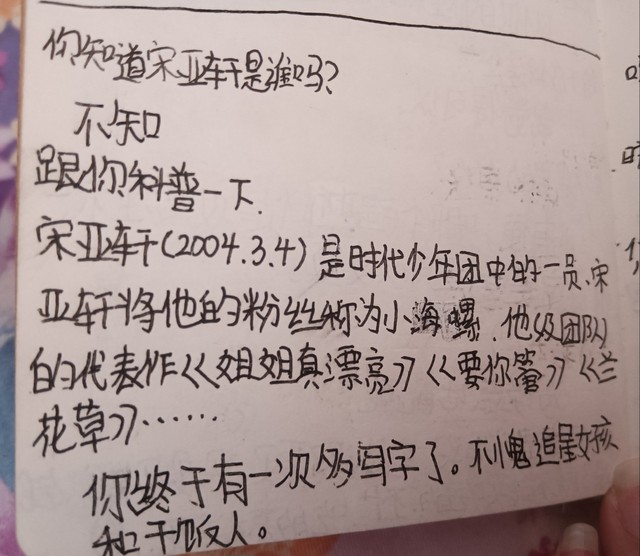 你知道宋亚轩是谁吗?
不知
跟你科普一下.
宋亚轩(2004.3.4)是时代少年团中的一员.宋
亚轩将他的粉丝称为小海螺.他及团队
的代表作《姐姐真漂亮》《要你管》《兰
花草》……
你终于有一次多写字了。不愧追星女孩
和干饭人。